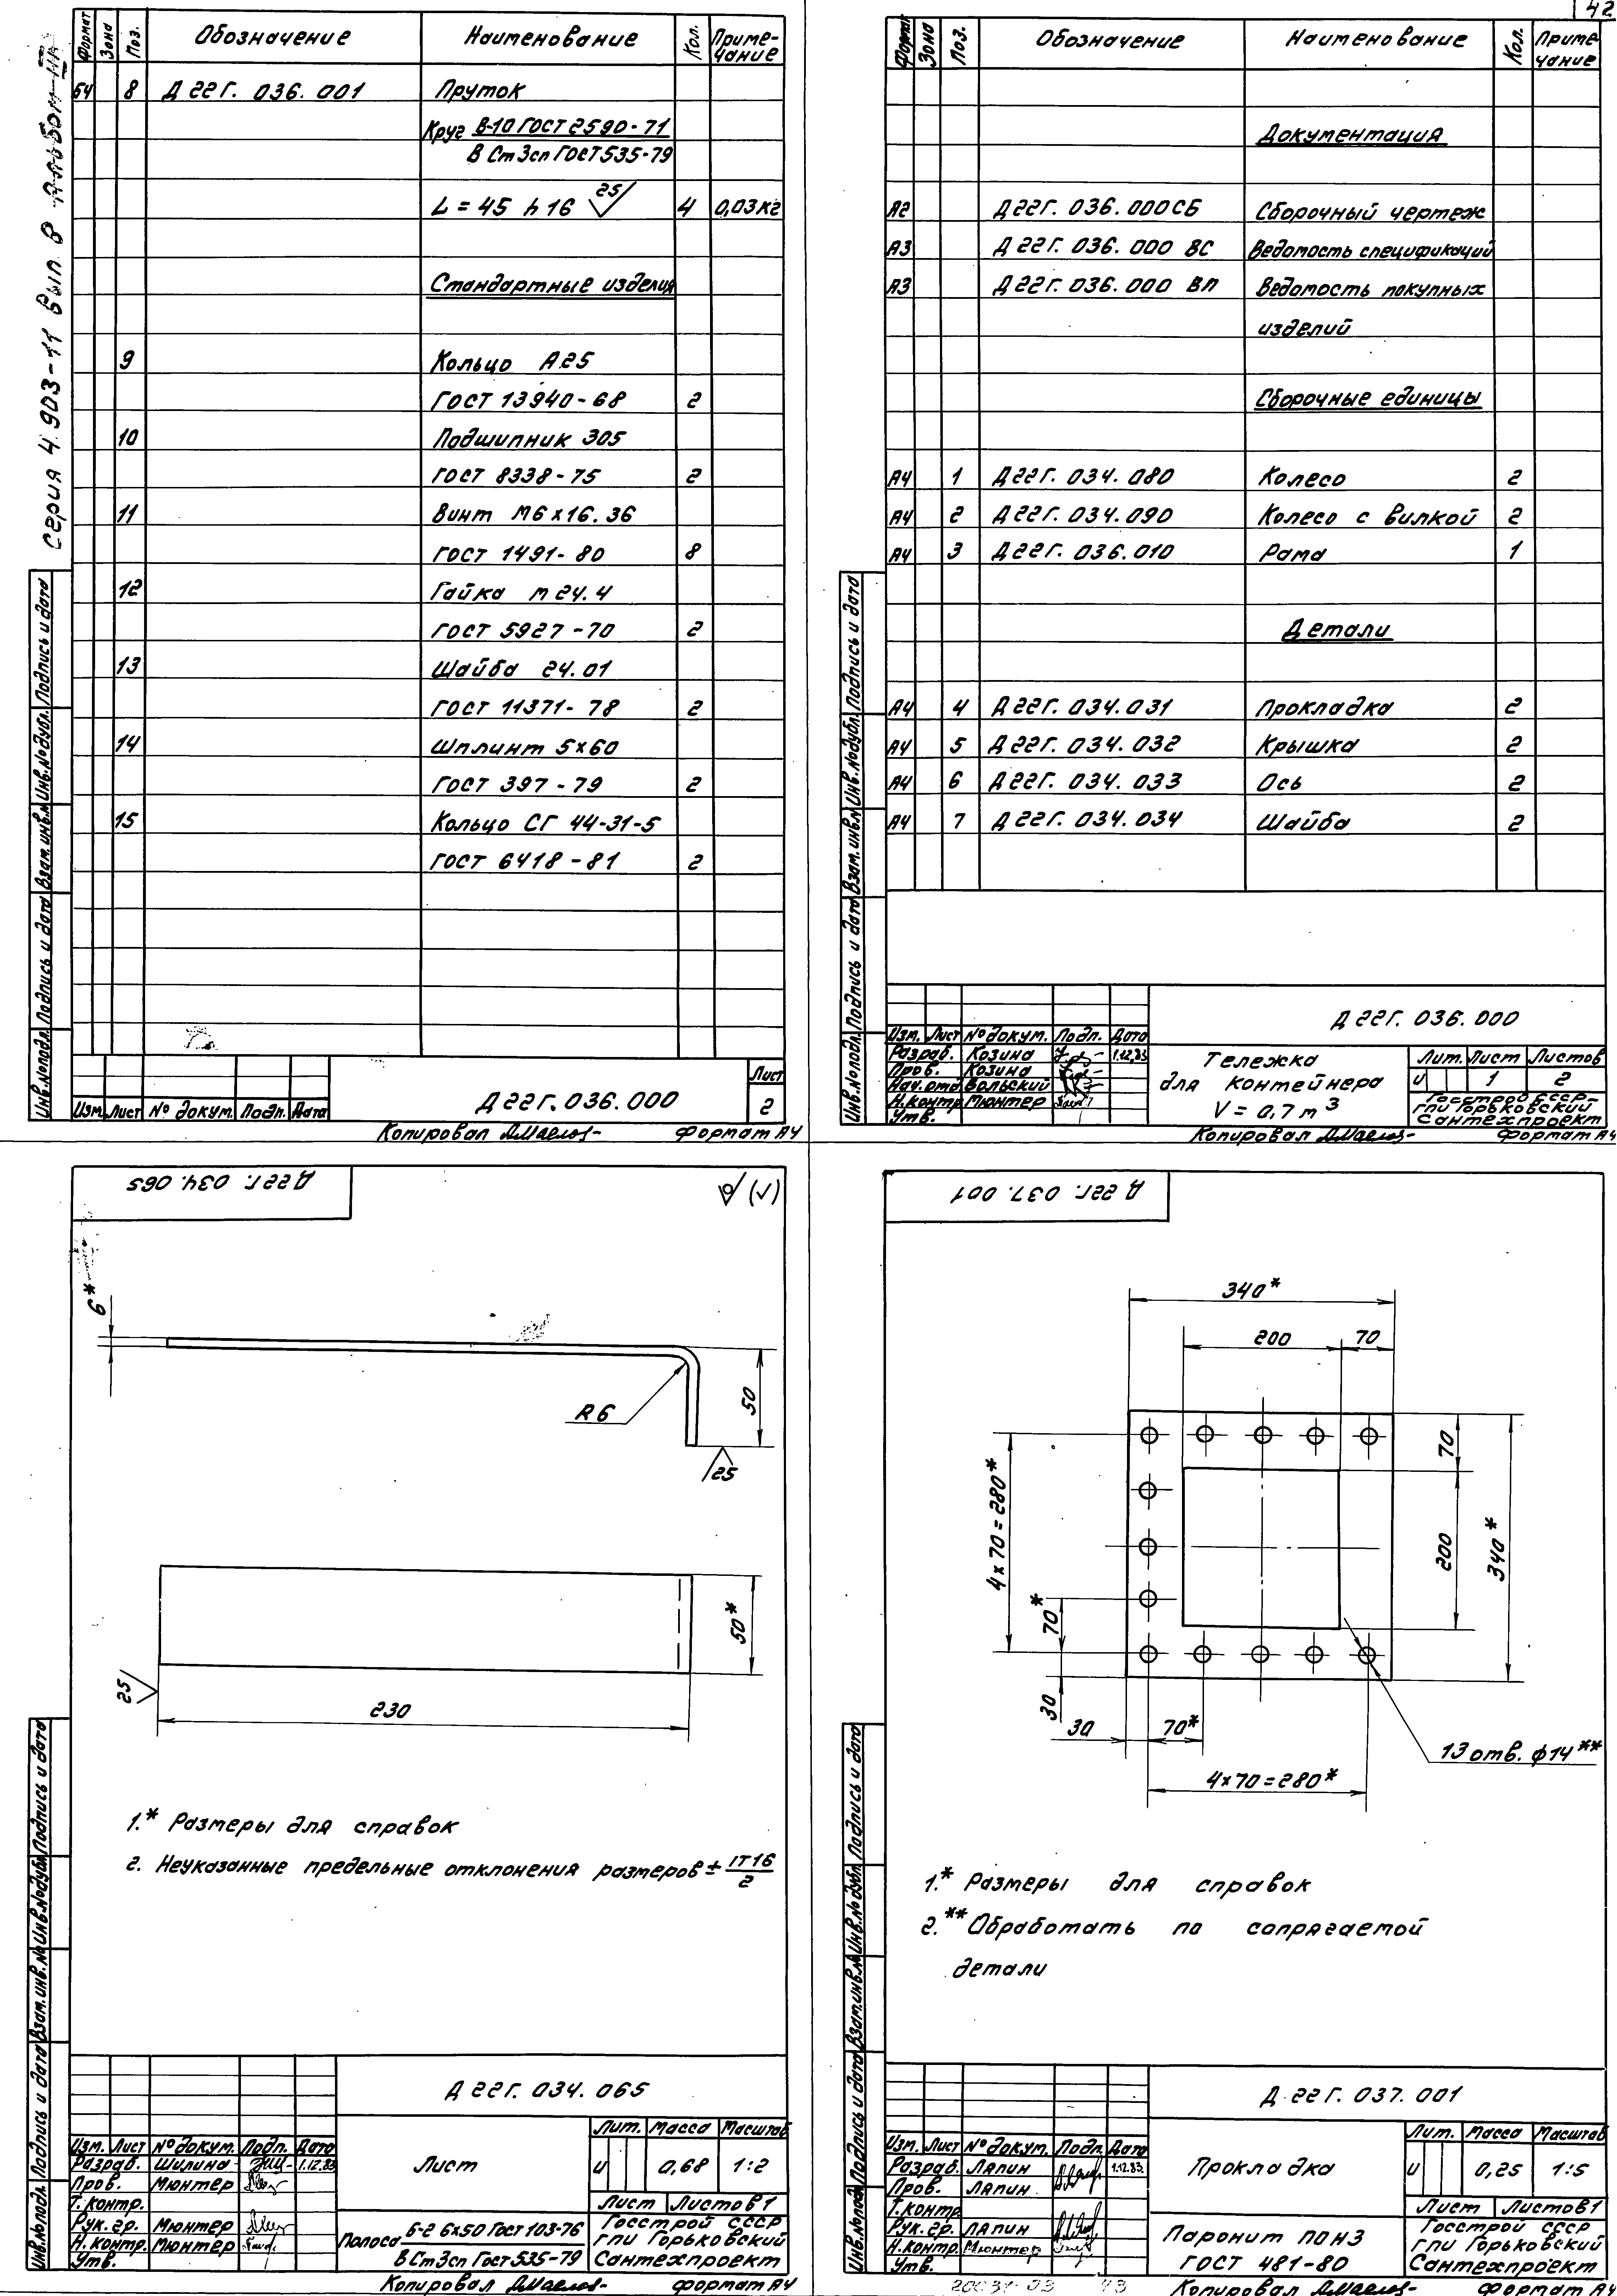 42
Серия 4.903-11 Вып. 8
Формат Зона Поз. Обозначение Наименование Кол. Примечание
БЧ 8 Д22Г. 036. 001 Пруток
Круг В-10 ГОСТ 2590-71
В Ст 3сп ГОСТ 535-79
L = 45 h 16 25 4 0,03кг
Стандартные изделия
9 Кольцо А25
ГОСТ 13940-68 2
10 Подшипник 305
ГОСТ 8338-75 2
11 Винт М6х16.36
ГОСТ 1491-80 8
12 Гайка М24.4
ГОСТ 5927-70 2
13 Шайба 24.01
ГОСТ 11371-78 2
14 Шплинт 5х60
ГОСТ 397-79 2
15 Кольцо СГ 44-31-5
ГОСТ 6418-81 2
Инв.№подл. Подпись и дата Взам.инв.№ Инв.№дубл. Подпись и дата
Изм. Лист № докум. Подп. Дата
Д22Г. 036.000
Лист
2
Копировал
Формат А4
Формат Зона Поз. Обозначение Наименование Кол. Примечание
Документация
А2 Д22Г. 036.000СБ Сборочный чертеж
А3 Д22Г. 036. 000 ВС Ведомость спецификаций
А3 Д22Г. 036. 000 ВП Ведомость покупных
изделий
Сборочные единицы
А4 1 Д22Г. 034. 080 Колесо 2
А4 2 Д22Г. 034.090 Колесо с вилкой 2
А4 3 Д22Г. 036.010 Рама 1
Детали
А4 4 Д22Г. 034.031 Прокладка 2
А4 5 Д22Г. 034. 032 Крышка 2
А4 6 Д22Г. 034. 033 Ось 2
А4 7 Д22Г. 034.034 Шайба 2
Инв.№подл. Подпись и дата Взам.инв.№ Инв.№дубл. Подпись и дата
Д22Г. 036.000
Изм. Лист № докум. Подп. Дата
Разраб. Козина 1.12.83
Пров. Козина
Нач.отд. Вольский
Н.контр. Мюнтер
Утв.
Тележка
для контейнера
V = 0.7 м³
Лит. Лист Листов
И 1 2
Госстрой СССР
ГПИ Горьковский
Сантехпроект
Копировал
Формат А4
Д22Г. 034. 065
(√)
6*
R6
50
25
50*
25
230
1.* Размеры для справок
2. Неуказанные предельные отклонения размеров ± IT16
2
Инв.№подл. Подпись и дата Взам.инв.№ Инв.№дубл. Подпись и дата
Д22Г. 034. 065
Изм. Лист № докум. Подп. Дата
Разраб. Шилина 1.12.83
Пров. Мюнтер
Т.контр.
Рук.гр. Мюнтер
Н.контр. Мюнтер
Утв.
Лист
Лит. Масса Масштаб
И 0,68 1:2
Лист Листов 1
Полоса Б-2 6х50 ГОСТ 103-76
В Ст 3сп ГОСТ 535-79
Госстрой СССР
ГПИ Горьковский
Сантехпроект
Копировал
Формат А4
Д22Г. 037. 001
340*
200 70
70
200
340*
4х70=280*
70*
30
30
70*
4х70=280*
13 отв. ф14**
1.* Размеры для справок
2.** Обработать по сопрягаемой
детали
Инв.№подл. Подпись и дата Взам.инв.№ Инв.№дубл. Подпись и дата
Д22Г. 037. 001
Изм. Лист № докум. Подп. Дата
Разраб. Лапин 1.12.83.
Пров. Лапин
Т.контр.
Рук.гр. Лапин
Н.контр. Мюнтер
Утв.
Прокладка
Лит. Масса Масштаб
И 0,25 1:5
Лист Листов 1
Паронит ПОН3
ГОСТ 481-80
Госстрой СССР
ГПИ Горьковский
Сантехпроект
43
Копировал
Формат А4